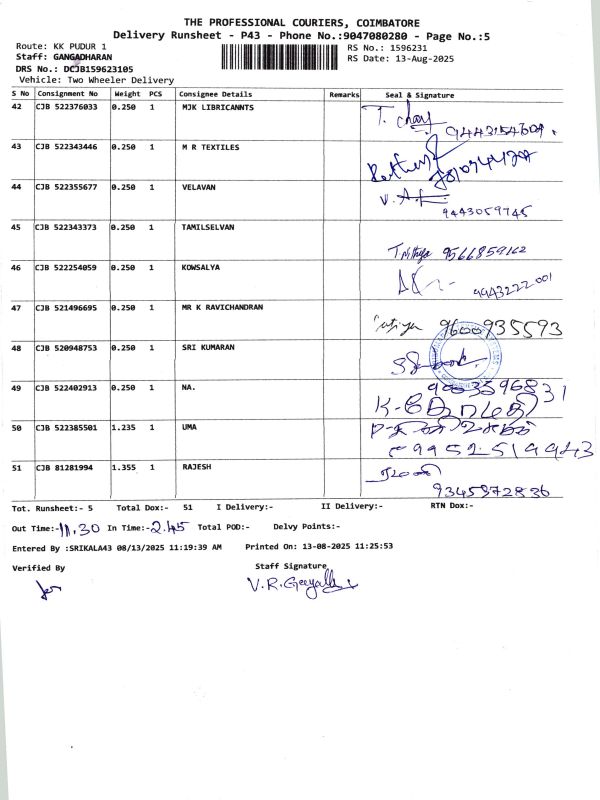 THE PROFESSIONAL COURIERS, COIMBATORE
Delivery Runsheet - P43 - Phone No.:9047080280 - Page No.:5
Route: KK PUDUR 1
RS No.: 1596231
Staff: GANGADHARAN
RS Date: 13-Aug-2025
DRS No.: DCJB159623105
Vehicle: Two Wheeler Delivery
S No Consignment No Weight PCS Consignee Details Remarks Seal & Signature
42 CJB 522376033 0.250 1 MJK LIBRICANNTS
9443154609.
43 CJB 522343446 0.250 1 M R TEXTILES
44 CJB 522355677 0.250 1 VELAVAN
9443059745
45 CJB 522343373 0.250 1 TAMILSELVAN
T. Nithya 9566859162
46 CJB 522254059 0.250 1 KOWSALYA
9943222001
47 CJB 521496695 0.250 1 MR K RAVICHANDRAN
9600935593
48 CJB 520948753 0.250 1 SRI KUMARAN
49 CJB 522402913 0.250 1 NA.
50 CJB 522385501 1.235 1 UMA
9952519943
51 CJB 81281994 1.355 1 RAJESH
9345972836
Tot. Runsheet:- 5 Total Dox:- 51 I Delivery:- II Delivery:- RTN Dox:-
Out Time:-11.30 In Time:-2.45 Total POD:- Delvy Points:-
Entered By :SRIKALA43 08/13/2025 11:19:39 AM Printed On: 13-08-2025 11:25:53
Verified By Staff Signature